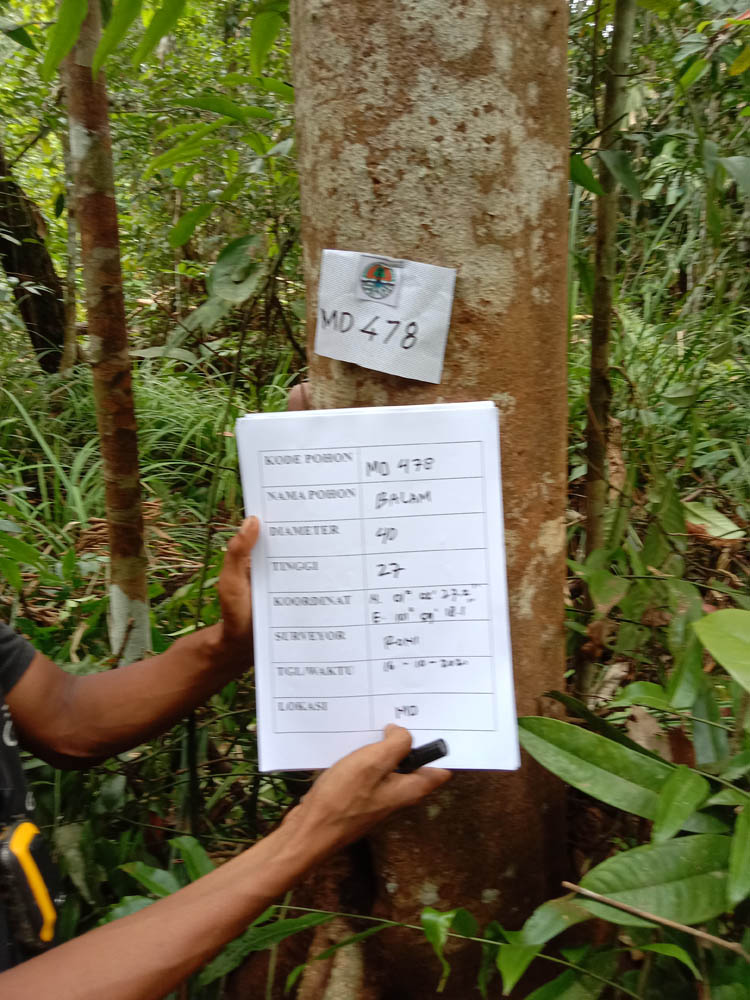 MD 478
KODE POHON MD 478
NAMA POHON BALAM
DIAMETER 40
TINGGI 27
KOORDINAT N. 01° 02' 27.2"
E. 101° 09' 18.1
SURVEYOR ROHI
TGL/WAKTU 16-10-2021
LOKASI MD